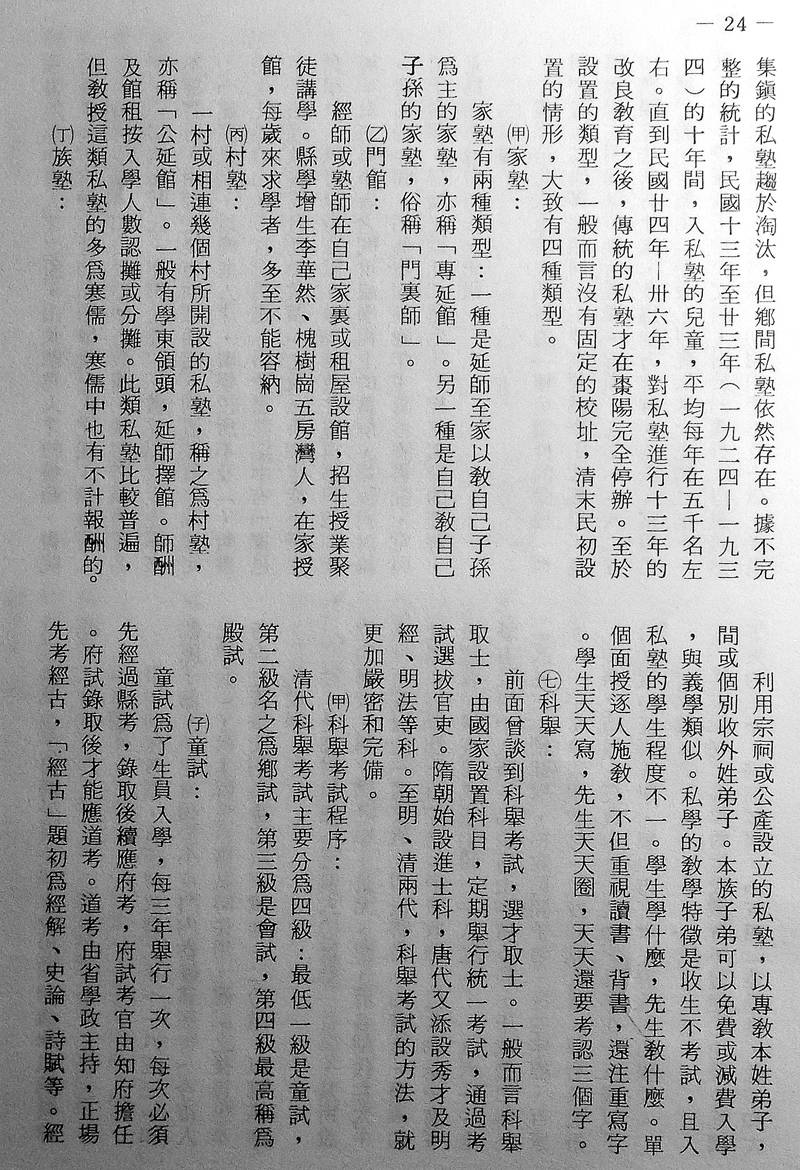 — 24 —
集鎮的私塾趨於淘汰，但鄉間私塾依然存在。據不完
整的統計，民國十三年至廿三年（一九二四—一九三
四）的十年間，入私塾的兒童，平均每年在五千名左
右。直到民國廿四年—卅六年，對私塾進行十三年的
改良教育之後，傳統的私塾才在棗陽完全停辦。至於
設置的類型，一般而言沒有固定的校址，清末民初設
置的情形，大致有四種類型。
㈠家塾：
家塾有兩種類型：一種是延師至家以教自己子孫
爲主的家塾，亦稱「專延館」。另一種是自己教自己
子孫的家塾，俗稱「門裏師」。
(乙)門館：
經師或塾師在自己家裏或租屋設館，招生授業聚
徒講學。縣學增生李華然、槐樹崗五房灣人，在家授
館，每歲來求學者，多至不能容納。
(丙)村塾：
一村或相連幾個村所開設的私塾，稱之爲村塾，
亦稱「公延館」。一般有學東領頭，延師擇館。師酬
及館租按入學人數認攤或分攤。此類私塾比較普遍，
但教授這類私塾的多爲寒儒，寒儒中也有不計報酬的。
(丁)族塾：
利用宗祠或公產設立的私塾，以專教本姓弟子，
間或個別收外姓弟子。本族子弟可以免費或減費入學
，與義學類似。私學的教學特徵是收生不考試，且入
私塾的學生程度不一。學生學什麼，先生教什麼。單
個面授逐人施教，不但重視讀書、背書，還注重寫字
。學生天天寫，先生天天圈，天天還要考認三個字。
㊆科舉：
前面曾談到科舉考試，選才取士。一般而言科舉
取士，由國家設置科目，定期舉行統一考試，通過考
試選拔官吏。隋朝始設進士科，唐代又添設秀才及明
經、明法等科。至明、清兩代，科舉考試的方法，就
更加嚴密和完備。
(甲)科舉考試程序：
清代科舉考試主要分爲四級：最低一級是童試，
第二級名之爲鄉試，第三級是會試，第四級最高稱爲
殿試。
(子)童試：
童試爲了生員入學，每三年舉行一次，每次必須
先經過縣考，錄取後續應府考，府試考官由知府擔任
。府試錄取後才能應道考。道考由省學政主持，正場
先考經古，「經古」題初爲經解、史論、詩賦等。經